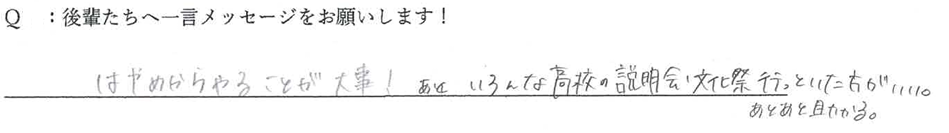 Q ：後輩たちへ一言メッセージをお願いします！
はやめからやることが大事！ あと いろんな高校の説明会、文化祭行っといた方がいい。
あとあと助かる。